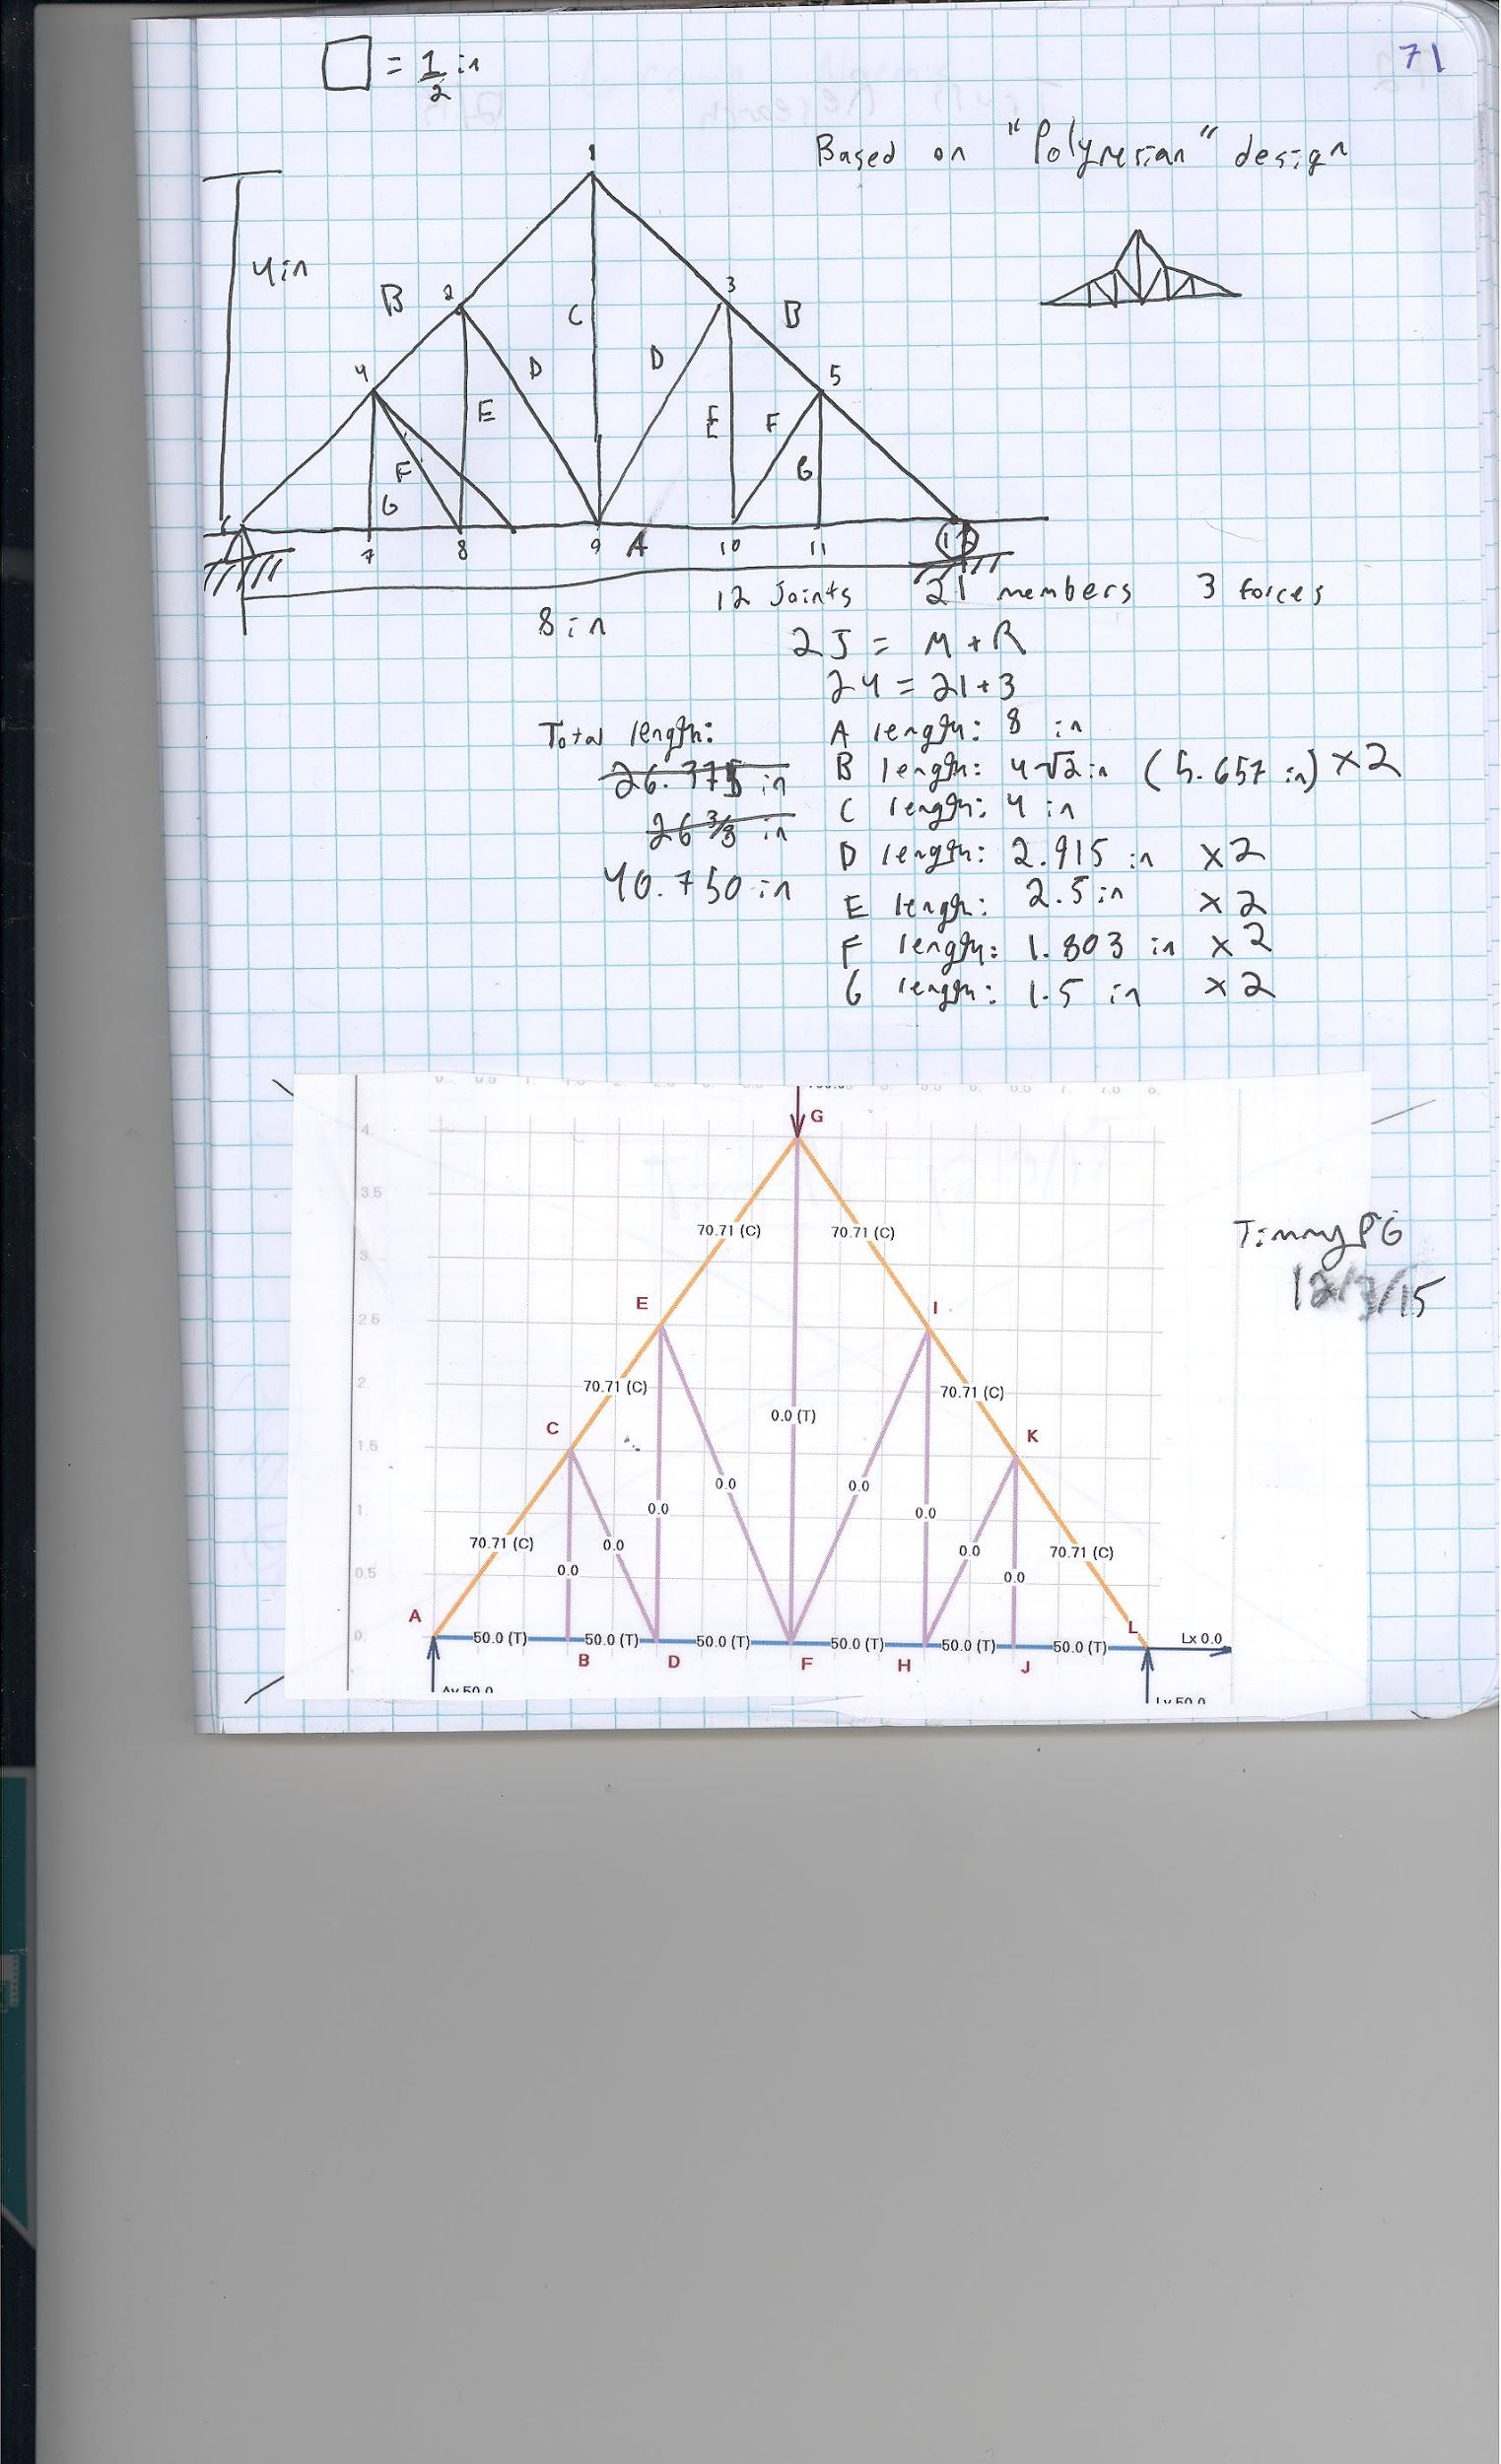 71
= 1/2 in
Based on "Polynesian" design
4in
1
B 2 C D D 3 B
4 E E F 5
F G G
7 8 9 A 10 11 12
8 in
12 Joints 21 members 3 forces
2J = M + R
24 = 21 + 3
Total length:
26.775 in
26 3/8 in
40.750 in
A length: 8 in
B length: 4√2 in (5.657 in) x2
C length: 4 in
D length: 2.915 in x2
E length: 2.5 in x2
F length: 1.803 in x2
G length: 1.5 in x2
G
4.
3.5
70.71 (C) 70.71 (C)
3.
E I
2.5
70.71 (C) 70.71 (C)
2.
0.0 (T)
C K
1.5
0.0 0.0
0.0 0.0
1.
70.71 (C) 0.0 0.0 70.71 (C)
0.5 0.0 0.0
A L
0.
50.0 (T) 50.0 (T) 50.0 (T) 50.0 (T) 50.0 (T) 50.0 (T) Lx 0.0
B D F H J
Ay 50.0 Ly 50.0
Timmy PG